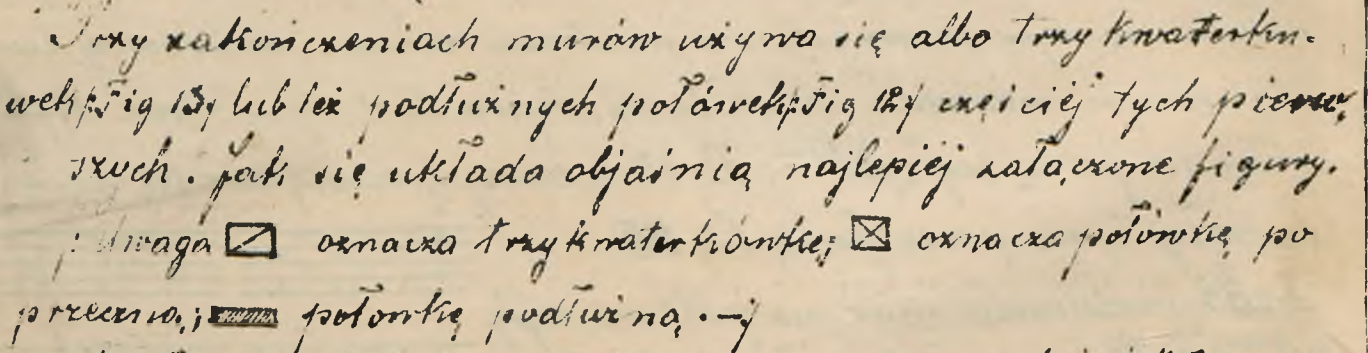 Przy zakończeniach murów używa się albo trzykwaterkó-
wek /:Fig 13:/ lub też podłużnych połówek /:Fig 12:/ częściéj tych pierw,
szych. Jak się układa objaśnią najlepiéj załączone figury.
/:Uwaga oznacza trzykwaterkówkę; oznacza połówkę po
przeczną; połówkę podłużną.—:/